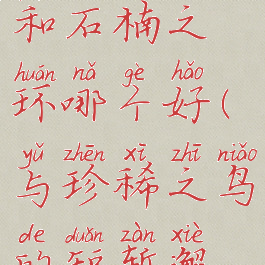 和石楠之
huán nǎ gè hǎo
环哪个好(
yǔ zhēn xī zhī niǎo
与珍稀之鸟
de duǎn zàn xiè
的短暂邂